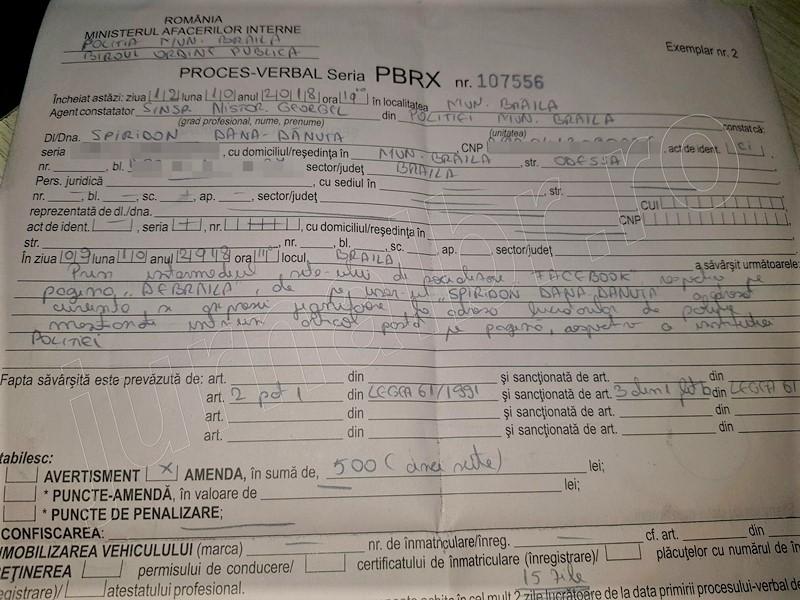 ROMÂNIA
MINISTERUL AFACERILOR INTERNE
POLITIA MUN. BRAILA
BIROUL ORDINE PUBLICA
Exemplar nr. 2
PROCES-VERBAL Seria PBRX nr. 107556
Încheiat astăzi: ziua 12 luna 10 anul 2018 ora în localitatea MUN. BRAILA
Agent constatator SINSP. NISTOR GEORGEL din POLITIEI MUN. BRAILA constat că:
(grad profesional, nume, prenume) (unitatea)
Dl/Dna. SPIRIDON DANA-DANUTA, CNP, act de ident. CI
seria, cu domiciliul/reşedinţa în MUN. BRAILA, str. ODESSA
nr., bl. sector/judeţ BRAILA
Pers. juridică, cu sediul în, str.
nr., bl., sc., ap., sector/judeţ CUI
reprezentată de dl./dna. CNP
act de ident., seria, nr., cu domiciliul/reşedinţa în
str., nr., bl., sc., ap., sector/judeţ
În ziua 09 luna 10 anul 2018 ora locul BRAILA a săvârşit următoarele:
Prin intermediul site-ului de socializare "FACEBOOK" respectiv pe
pagina "DEBRAILA", de pe user-ul "SPIRIDON DANA DANUTA" adresa
cuvinte si expresii jignitoare la adresa lucratorilor de politie
intr-un articol postat pe pagina, respectiv a institutiei
POLITIEI
Fapta săvârşită este prevăzută de: art. din şi sancţionată de art. din
art. 2 pct 1 din LEGEA 61/1991 şi sancţionată de art. 3 alin 1 lit b din LEGEA 61
art. din şi sancţionată de art. din
art. din şi sancţionată de art. din
tabilesc:
AVERTISMENT X AMENDA, în sumă de, 500 (cinci sute) lei;
* PUNCTE-AMENDĂ, în valoare de lei;
* PUNCTE DE PENALIZARE;
CONFISCAREA: cf. art. din
MOBILIZAREA VEHICULULUI (marca) nr. de înmatriculare/înreg.
EŢINEREA permisului de conducere/ certificatului de înmatriculare (înregistrare)/ plăcuţelor cu numărul de în
egistrare)/ atestatului profesional. 15 zile
achite în cel mult 2 zile lucrătoare de la data primirii procesului-verbal de
jurnalbr.ro